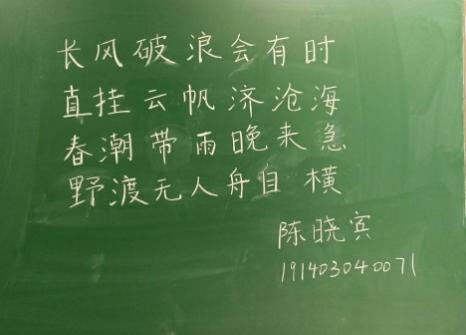 长风破浪会有时
直挂云帆济沧海
春潮带雨晚来急
野渡无人舟自横
陈晓宾
191403040071